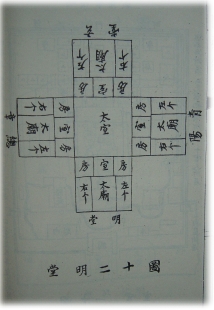 玄堂
右个 太廟 左个
房 室 房
青陽
左个 房
太廟 室
右个 房
太室
總章
右个 房
太廟 室
左个 房
房 室 房
左个 太廟 右个
明堂
圖十二明堂